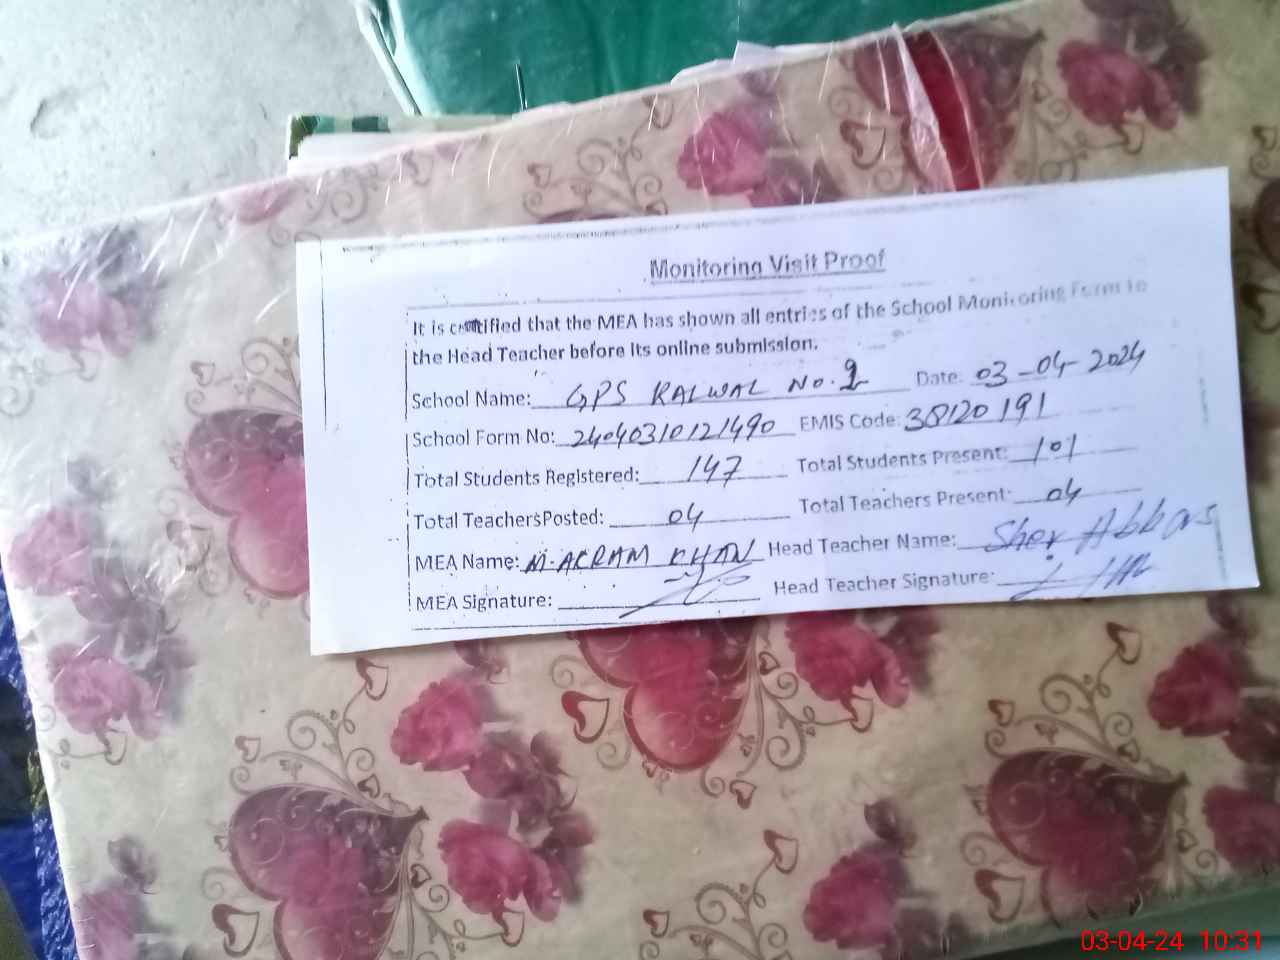 Monitoring Visit Proof
It is certified that the MEA has shown all entries of the School Monitoring Form to
the Head Teacher before its online submission.
School Name: GPS KALWAL No. 2 Date: 03-04-2024
School Form No: 24040310121490 EMIS Code: 38120191
Total Students Registered: 147 Total Students Present: 101
Total TeachersPosted: 04 Total Teachers Present: 04
MEA Name: M. AKRAM KHAN Head Teacher Name: Sher Abbas
MEA Signature: Head Teacher Signature:
03-04-24 10:31